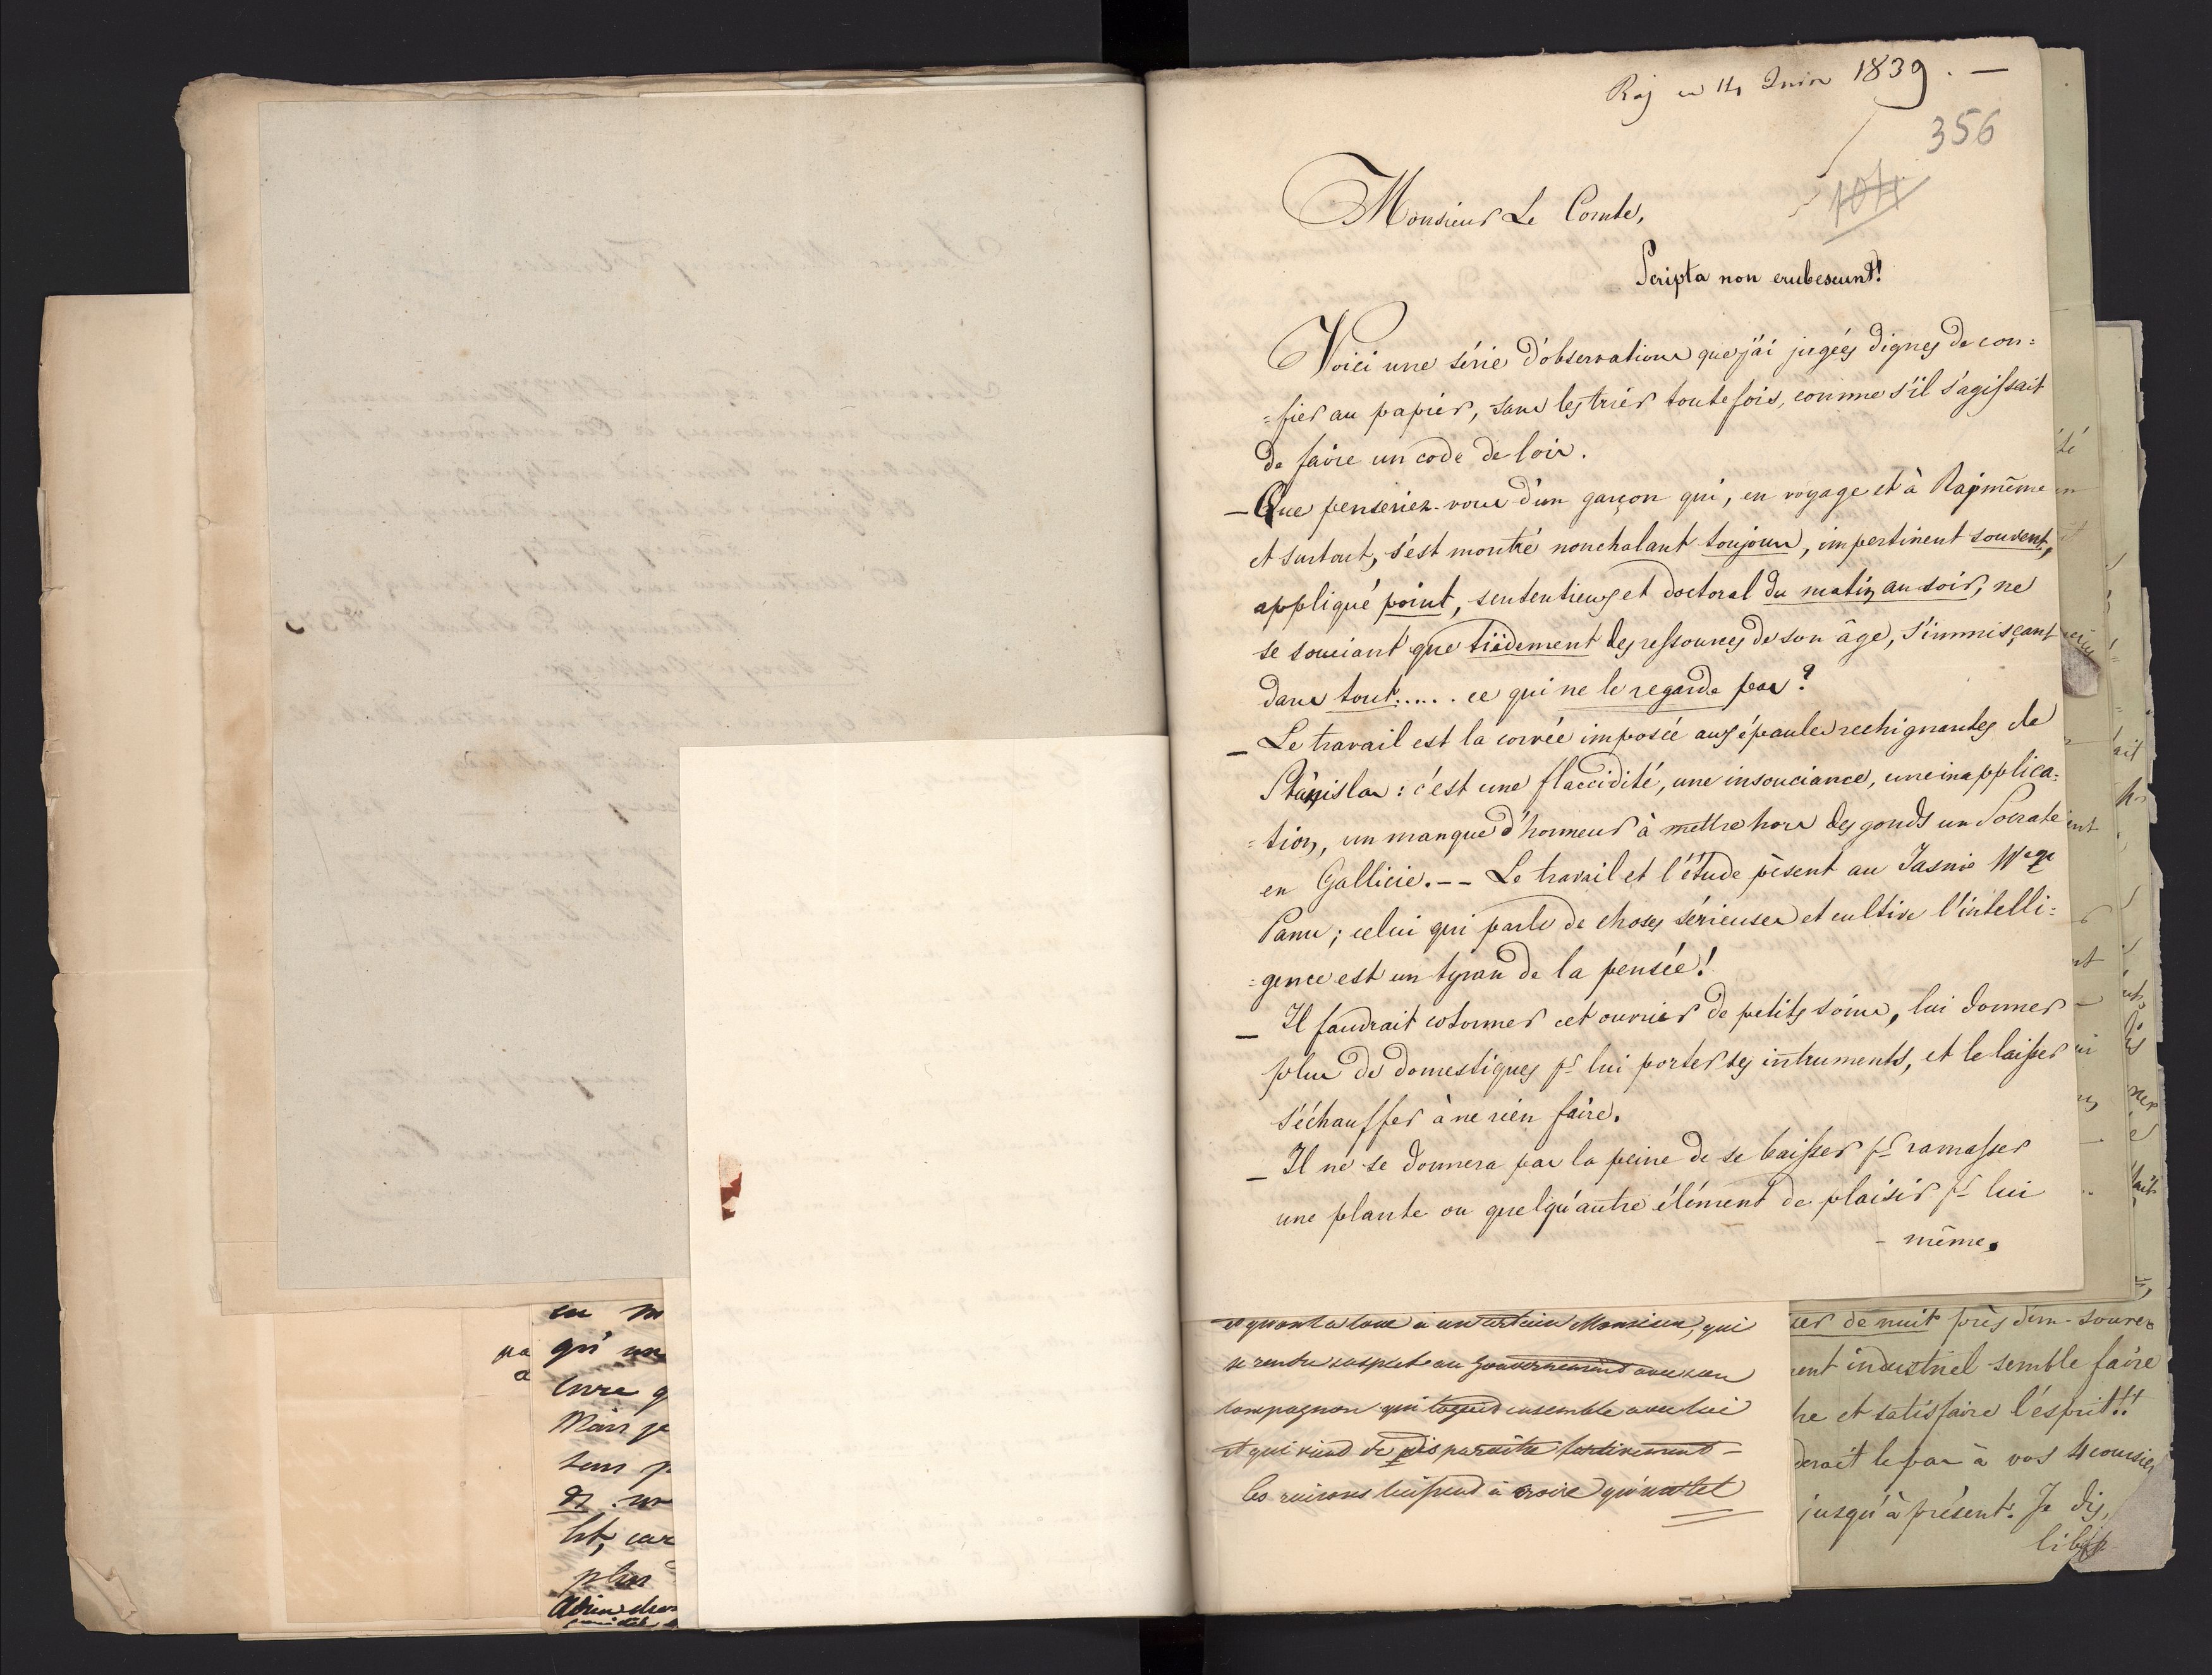 Raj ce 14 Juin 1839. —
356
104
Monsieur Le Comte,
Scripta non erubescunt!
Voici une série d'observations que j'ai jugées dignes de con=
=fier au papier, sans les trier toutefois, comme s'il s'agissait
de faire un code de lois.
— Que penseriez-vous d'un garçon qui, en voyage et à Raj même
et surtout, s'est montré nonchalant toujours, impertinent souvent,
appliqué point, sententieux et doctoral du matin au soir, ne
se souciant que tièdement des ressources de son âge, s'immisçant
dans tout..... ce qui ne le regarde pas?
— Le travail est la corvée imposée aux épaules rechignantes de
Stanislas: c'est une flaccidité, une insouciance, une inapplica=
=tion, un manque d'honneur à mettre hors des gonds un Socrate
en Gallicie. -- Le travail et l'étude pèsent au Jasnie
Panu; celui qui parle de choses sérieuses et cultive l'intelli=
=gence est un tyran de la pensée!
— Il faudrait cotonner cet ouvrier de petits soins, lui donner
plus de domestiques pr lui porter ses intruments, et le laisser
s'échauffer à ne rien faire.
— Il ne se donnera pas la peine de se baisser pr ramasser
une plante ou quelqu'autre élément de plaisir pr lui
- même.
et quant a un certain Monsieur, qui
se rendre suspect au Gouvernement avec son
compagnon qui ensemble avec lui
et qui vient de disparaître furtivement -
les raisons à croire
ser de nuit près d'un
ent industriel semble faire
he et satisfaire l'esprit!!
derait le pas à vos 4 coursiers
jusqu'à présent. Je dis,
en m
qu'un
livre q
Mais je
tems p
et, car
plus